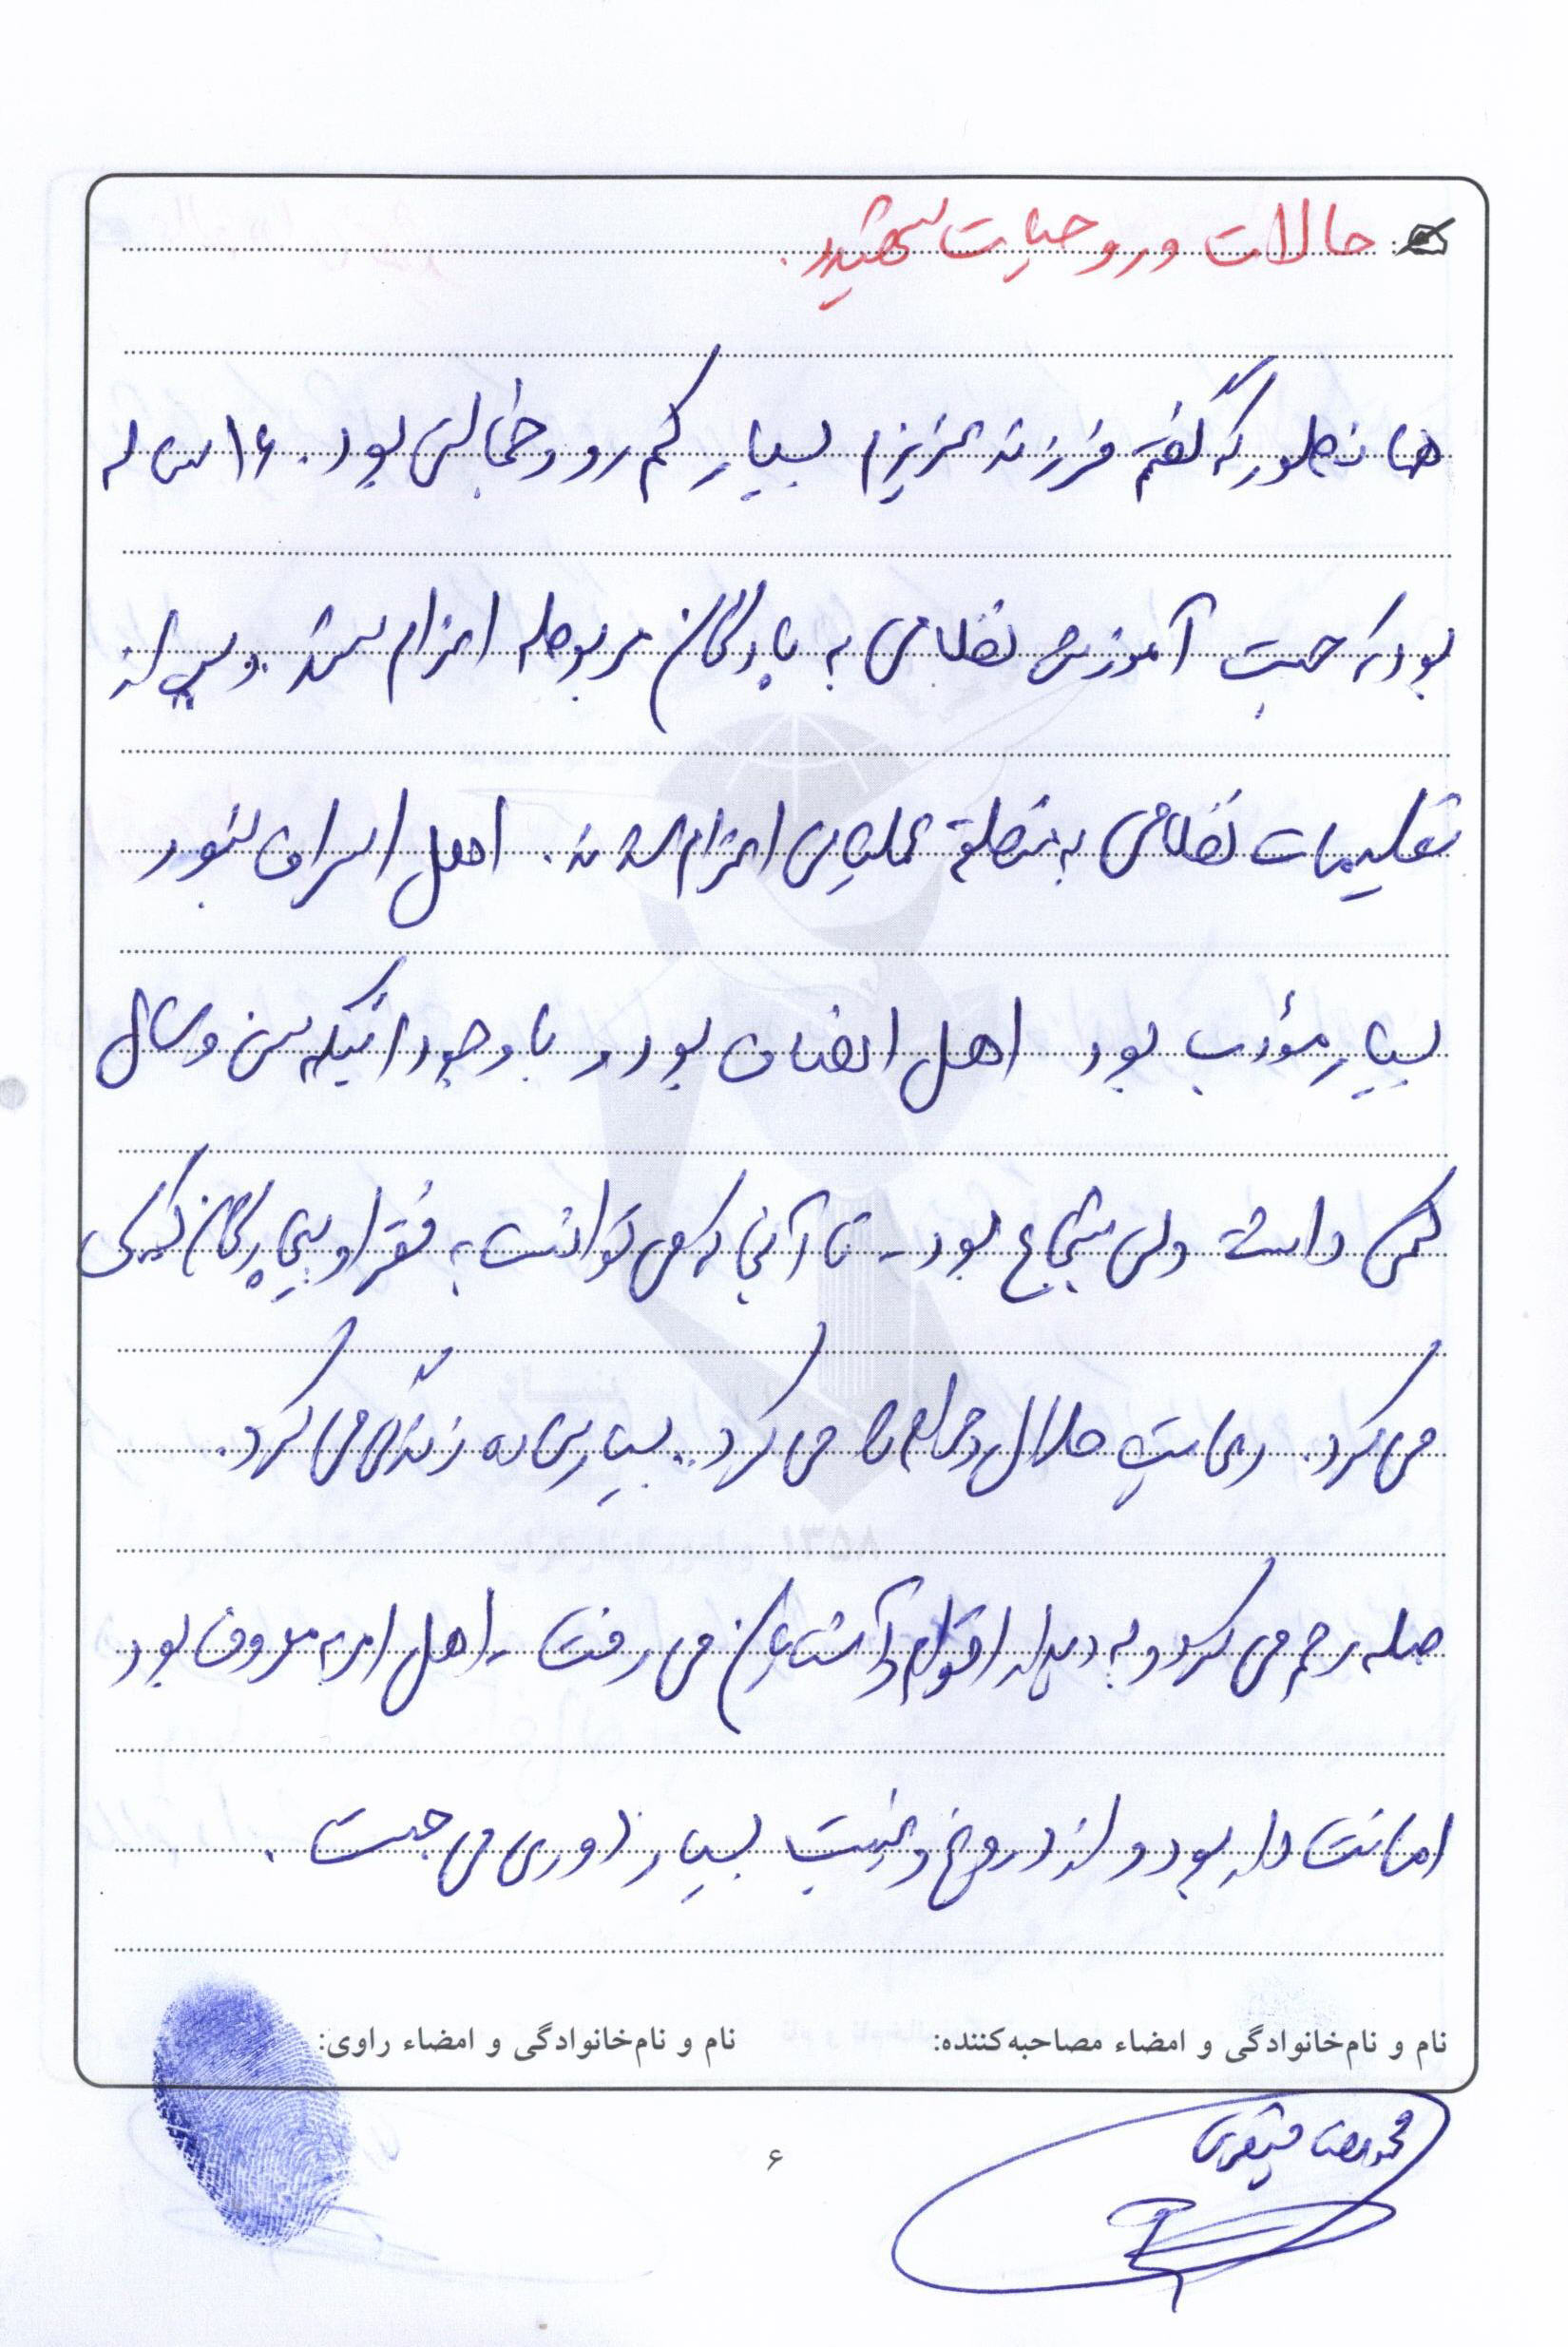 حالات و روحیات شهید.
همانطور که گفتم فرزند عزیزم بسیار کم رو و خجالتی بود. ۱۶ ساله
بود که جهت آموزش نظامی به پادگان مربوطه اعزام شد. و پس از
تعلیمات نظامی به منطقه عملیاتی اعزام شدند. اهل اسراف نبود
بسیار مؤدب بود اهل انفاق بود و با وجود اینکه سن و سال
کمی داشت ولی شجاع بود. تا آنجا که می توانست به فقرا و بیچارگان کمک
می کرد. رعایت حلال و حرام را می کرد. بسیار ساده زندگی می کرد.
صله رحم می کرد و به دیدار اقوام و آشنایان می رفت. اهل امر به معروف بود
امانت دار بود و از دروغ و غیبت بسیار دوری می جست.
نام و نام‌خانوادگی و امضاء مصاحبه‌کننده: نام و نام‌خانوادگی و امضاء راوی:
۶
۱۳۵۸